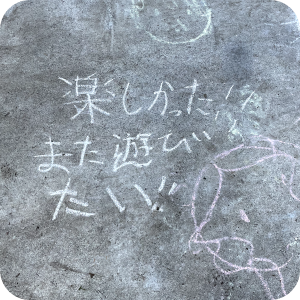 楽しかった!!
また遊び
たい!!